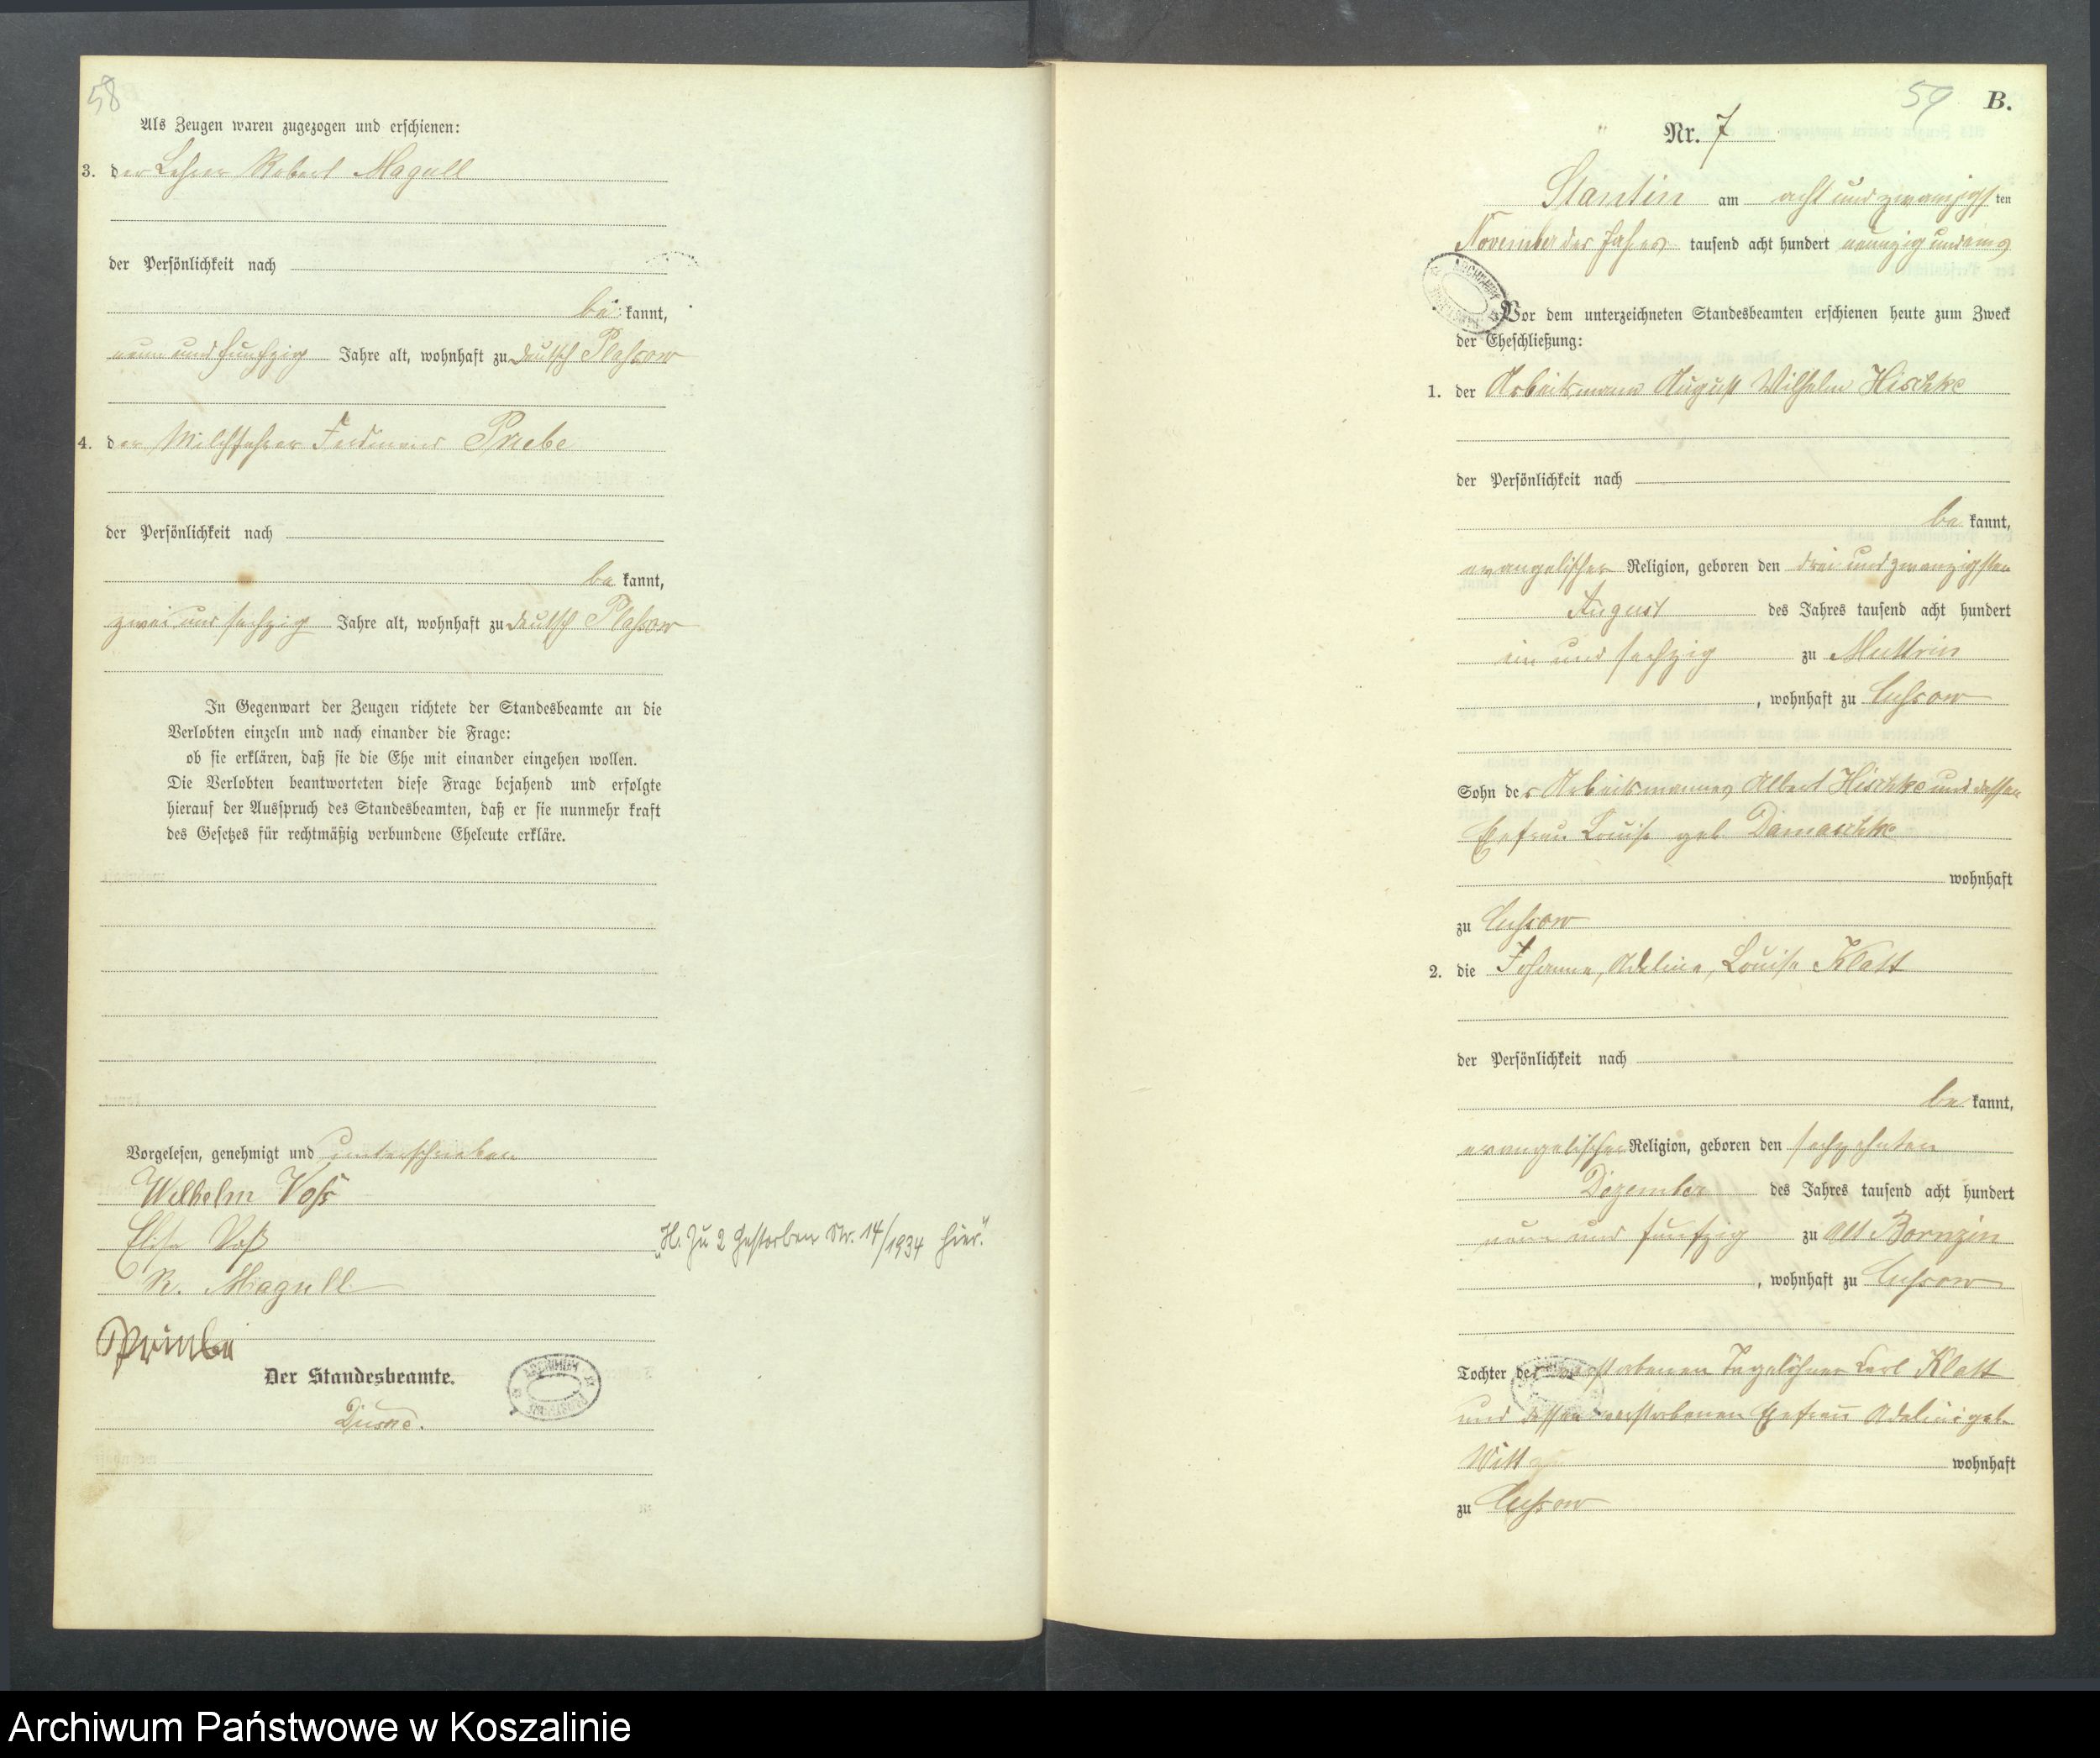 58
Als Zeugen waren zugezogen und erschienen:
3. der Lehrer Robert Magull
der Persönlichkeit nach
be kannt,
neun und funfzig Jahre alt, wohnhaft zu Deutsch Plassow
4. der Milchfahrer Ferdinand Priebe
der Persönlichkeit nach
be kannt,
zwei und sechzig Jahre alt, wohnhaft zu Deutsch Plassow
In Gegenwart der Zeugen richtete der Standesbeamte an die
Verlobten einzeln und nach einander die Frage:
ob sie erklären, daß sie die Ehe mit einander eingehen wollen.
Die Verlobten beantworteten diese Frage bejahend und erfolgte
hierauf der Ausspruch des Standesbeamten, daß er sie nunmehr kraft
des Gesetzes für rechtmäßig verbundene Eheleute erkläre.
Vorgelesen, genehmigt und unterschrieben
Wilhelm Voss
Elise Voß
R. Magull
„H. Zu 2 gestorben Nr. 14/1934 hier."
Der Standesbeamte.
59 B.
Nr. 7
Stantin am acht und zwanzigs ten
November des Jahres tausend acht hundert neunzig und eins
Vor dem unterzeichneten Standesbeamten erschienen heute zum Zweck
der Eheschließung:
1. der Arbeitsmann August Wilhelm Hischke
der Persönlichkeit nach
be kannt,
evangelischer Religion, geboren den drei und zwanzigsten
August des Jahres tausend acht hundert
ein und sechzig zu Muttrin
, wohnhaft zu Lussow
Sohn des Arbeitsmannes Albert Hischke und dessen
Ehefrau Louise geb. Damaschke
wohnhaft
zu Lussow
2. die Johanne, Adeline, Louise Klatt
der Persönlichkeit nach
be kannt,
evangelischer Religion, geboren den sechzehnten
Dezember des Jahres tausend acht hundert
neun und funfzig zu Alt Bornzin
, wohnhaft zu Lussow
Tochter des verstorbenen Tagelöhner Carl Klatt
und dessen verstorbenen Ehefrau Adeline geb.
Witt wohnhaft
zu Lussow
Archiwum Państwowe w Koszalinie